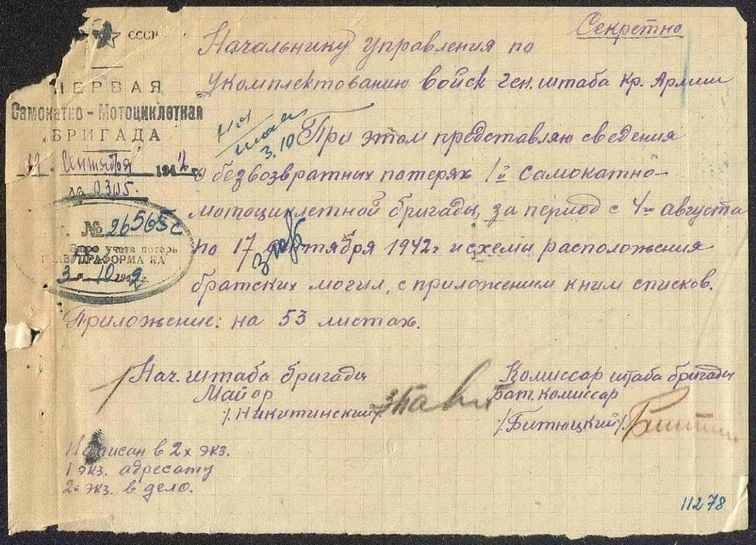 СССР
Секретно
ПЕРВАЯ
Самокатно-Мотоциклетная
БРИГАДА
Сентября 1942
0305.
Начальнику управления по
укомплектованию войск Ген. штаба Кр. Армии
3.10
При этом представляю сведения
о безвозвратных потерях 1й Самокатно-
мотоциклетной бригады, за период с 4го августа
по 17 тября 1942г и схемы расположения
братских могил, с приложением к ним списков.
Приложение: на 53 листах.
№ 26565с
Бюро учета потерь
ГЛАВУПРАФОРМА КА
3. 10 1942
Нач. штаба бригады
Майор
/Никитинский/
Комиссар штаба бригады
бат. комиссар
/Битюцкий/
Написан в 2х экз.
1 экз. адресату
2й экз. в дело.
11278